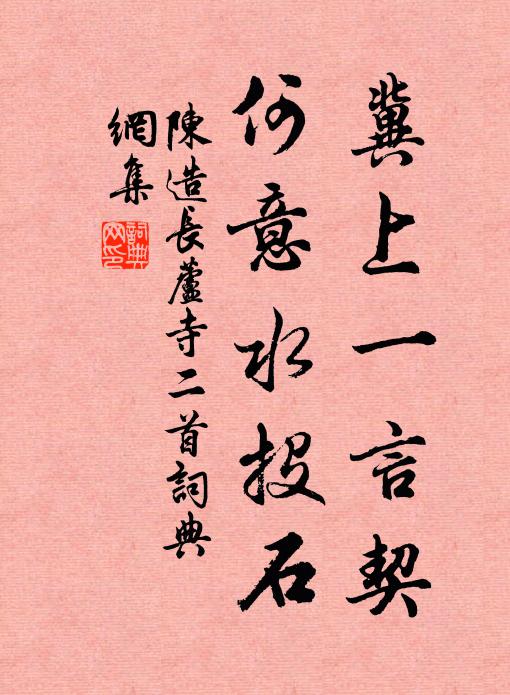 冀上一言契
何意水投石
陳造長蘆寺二首詞典
網集
詞典
網印